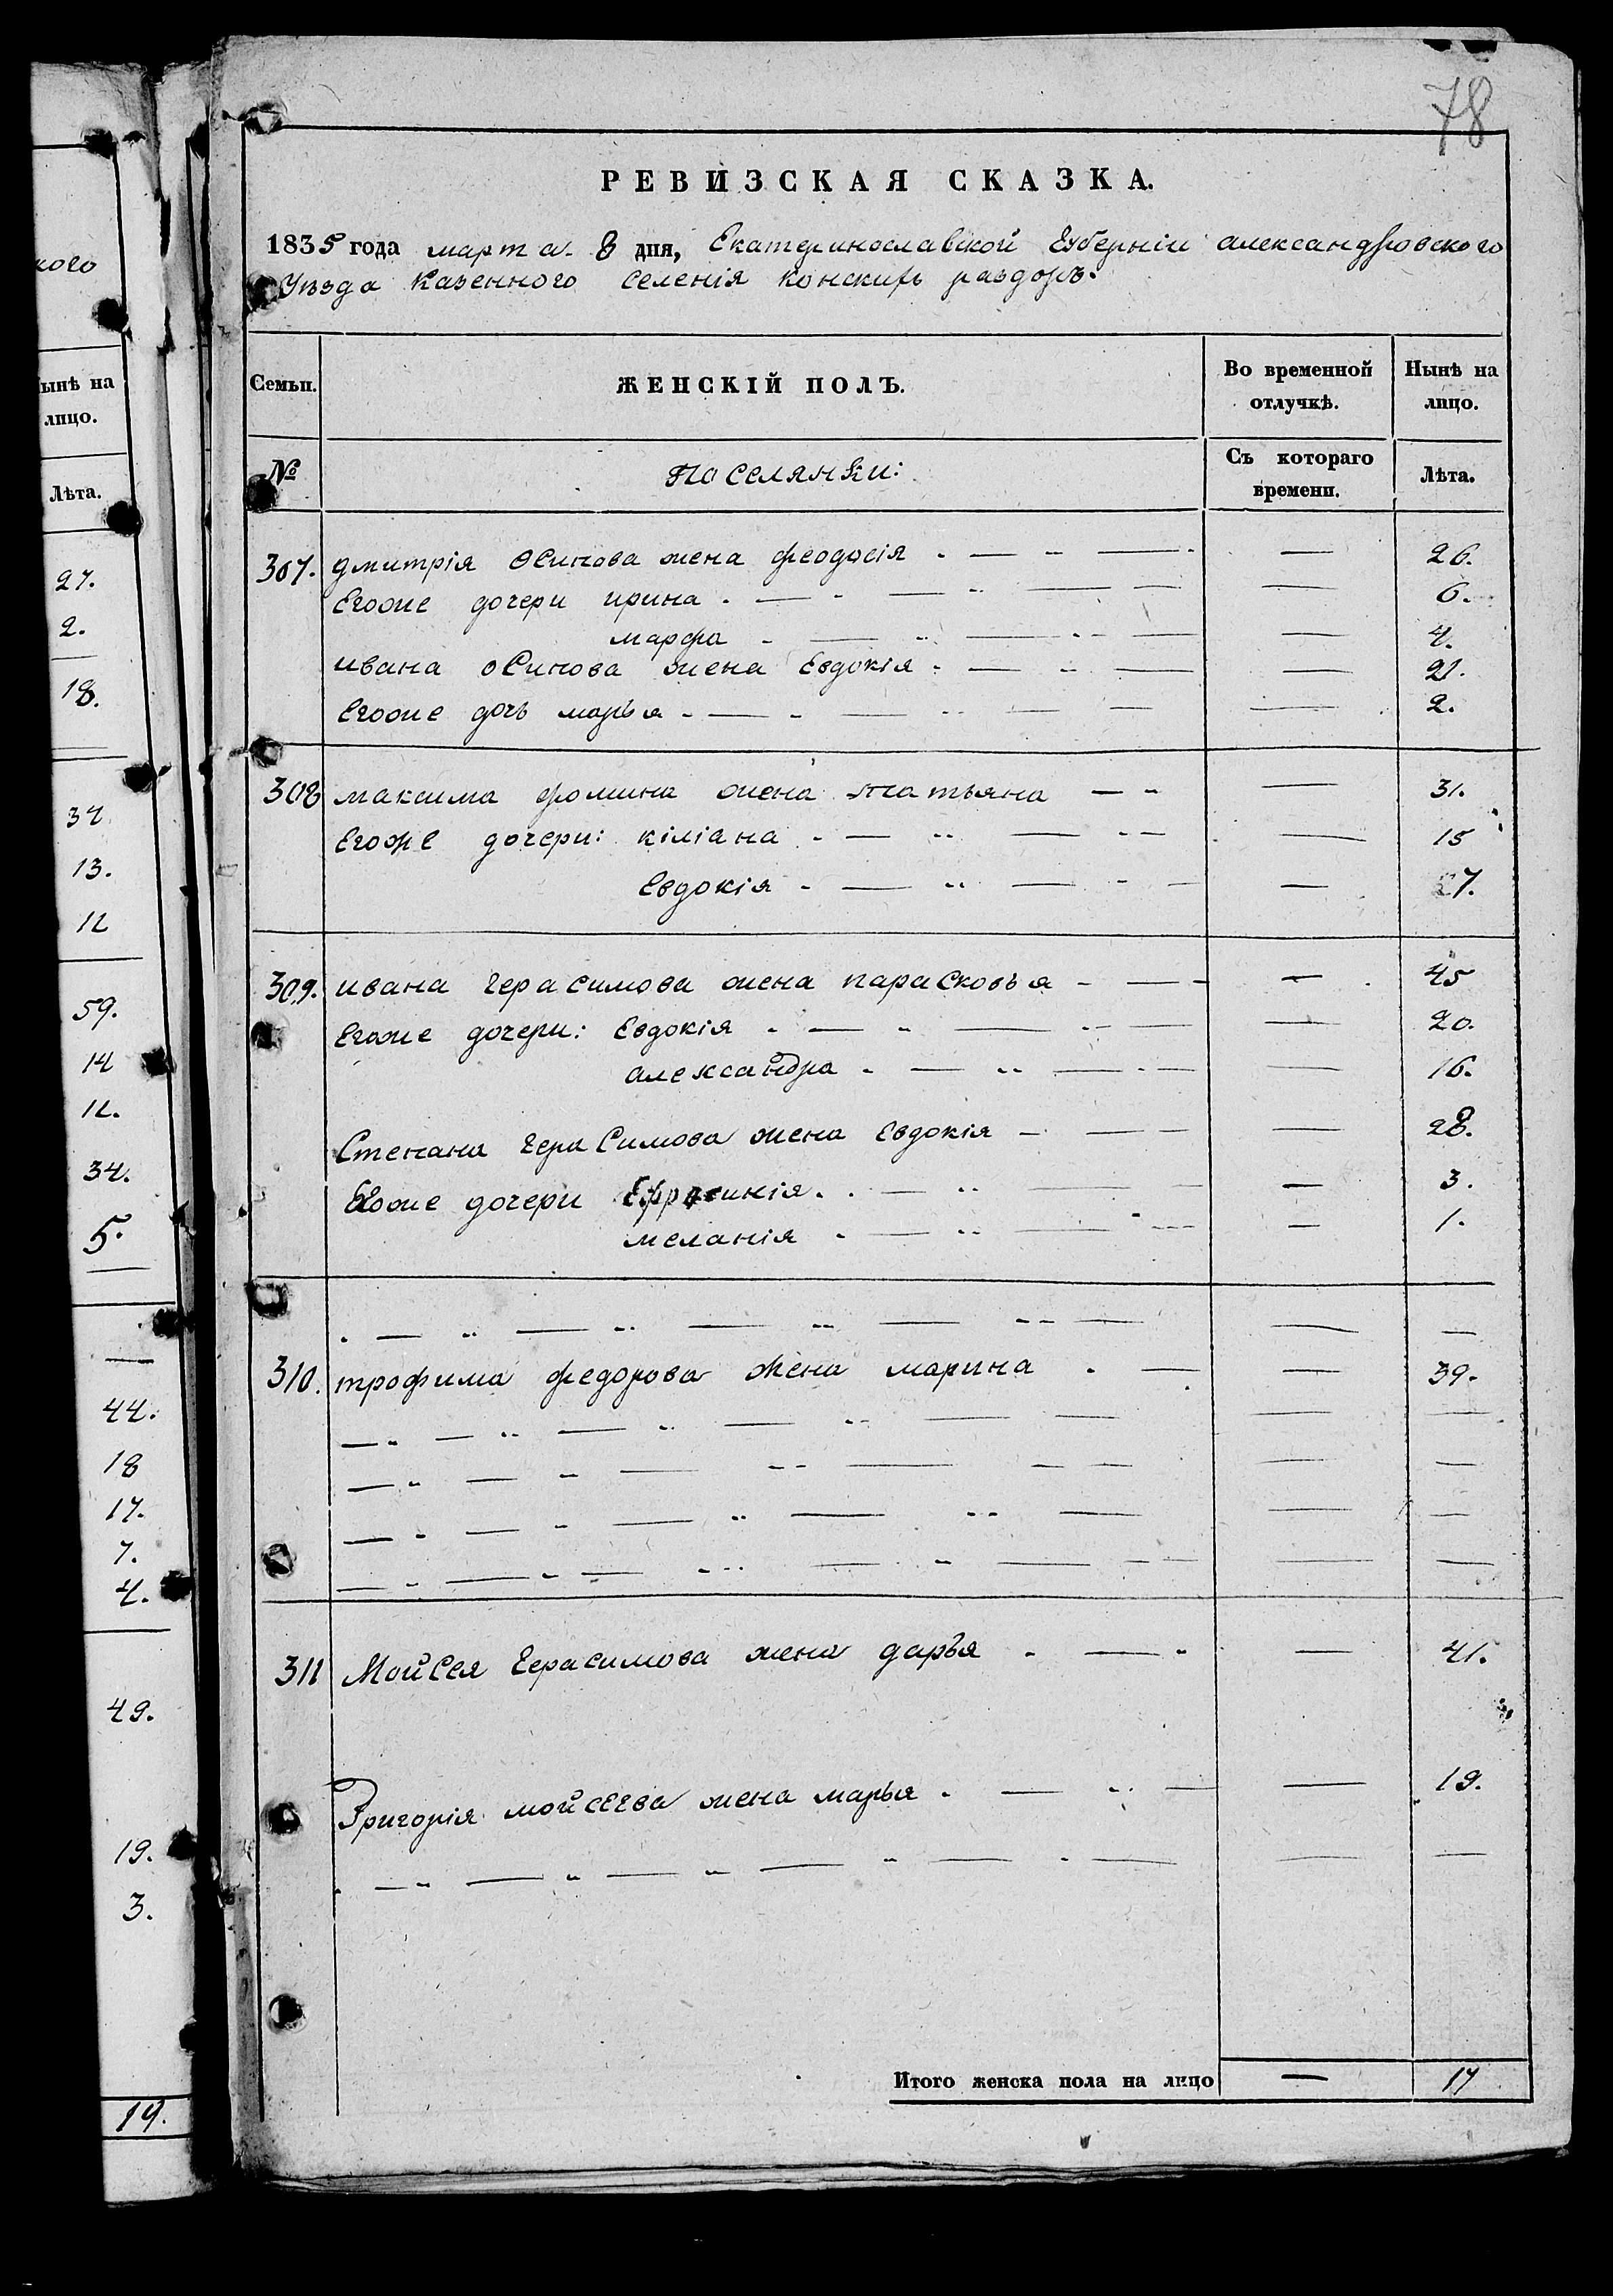 кого
Нынѣ на
лицо.
Лѣта.
27.
2.
18.
34
13.
12
59.
14
12.
34.
5.
44.
18
17.
7.
4.
49.
19.
3.
19.
78
РЕВИЗСКАЯ СКАЗКА.
1835 года марта 8 дня, Екатеринославской Губерніи александровского
Уѣзда Казенного селенія конскихъ раздоръ.
Семьи. ЖЕНСКІЙ ПОЛЪ. Во временной отлучкѣ. Нынѣ на лицо.
№ поселянки: Съ котораго времени. Лѣта.
307. дмитрія осипова жена феодосія — 26.
Егоже дочери ирина — 6.
марфа — 4.
ивана осипова жена Евдокія — 21.
Егоже дочь марья — 2.
308 максима фомина жена татьяна — 31.
Егоже дочери: кіліана — 15
Евдокія — 7.
309. ивана герасимова жена парасковья — 45
Егоже дочери: Евдокія — 20.
александра — 16.
Степана герасимова жена Евдокія — 28.
Егоже дочери Ефросинія — 3.
меланія — 1.
310. трофима федорова жена марина — 39.
311 Мойсея Герасимова жена дарья — 41.
Григорія мойсеева жена марья — 19.
Итого женска пола на лицо — 17